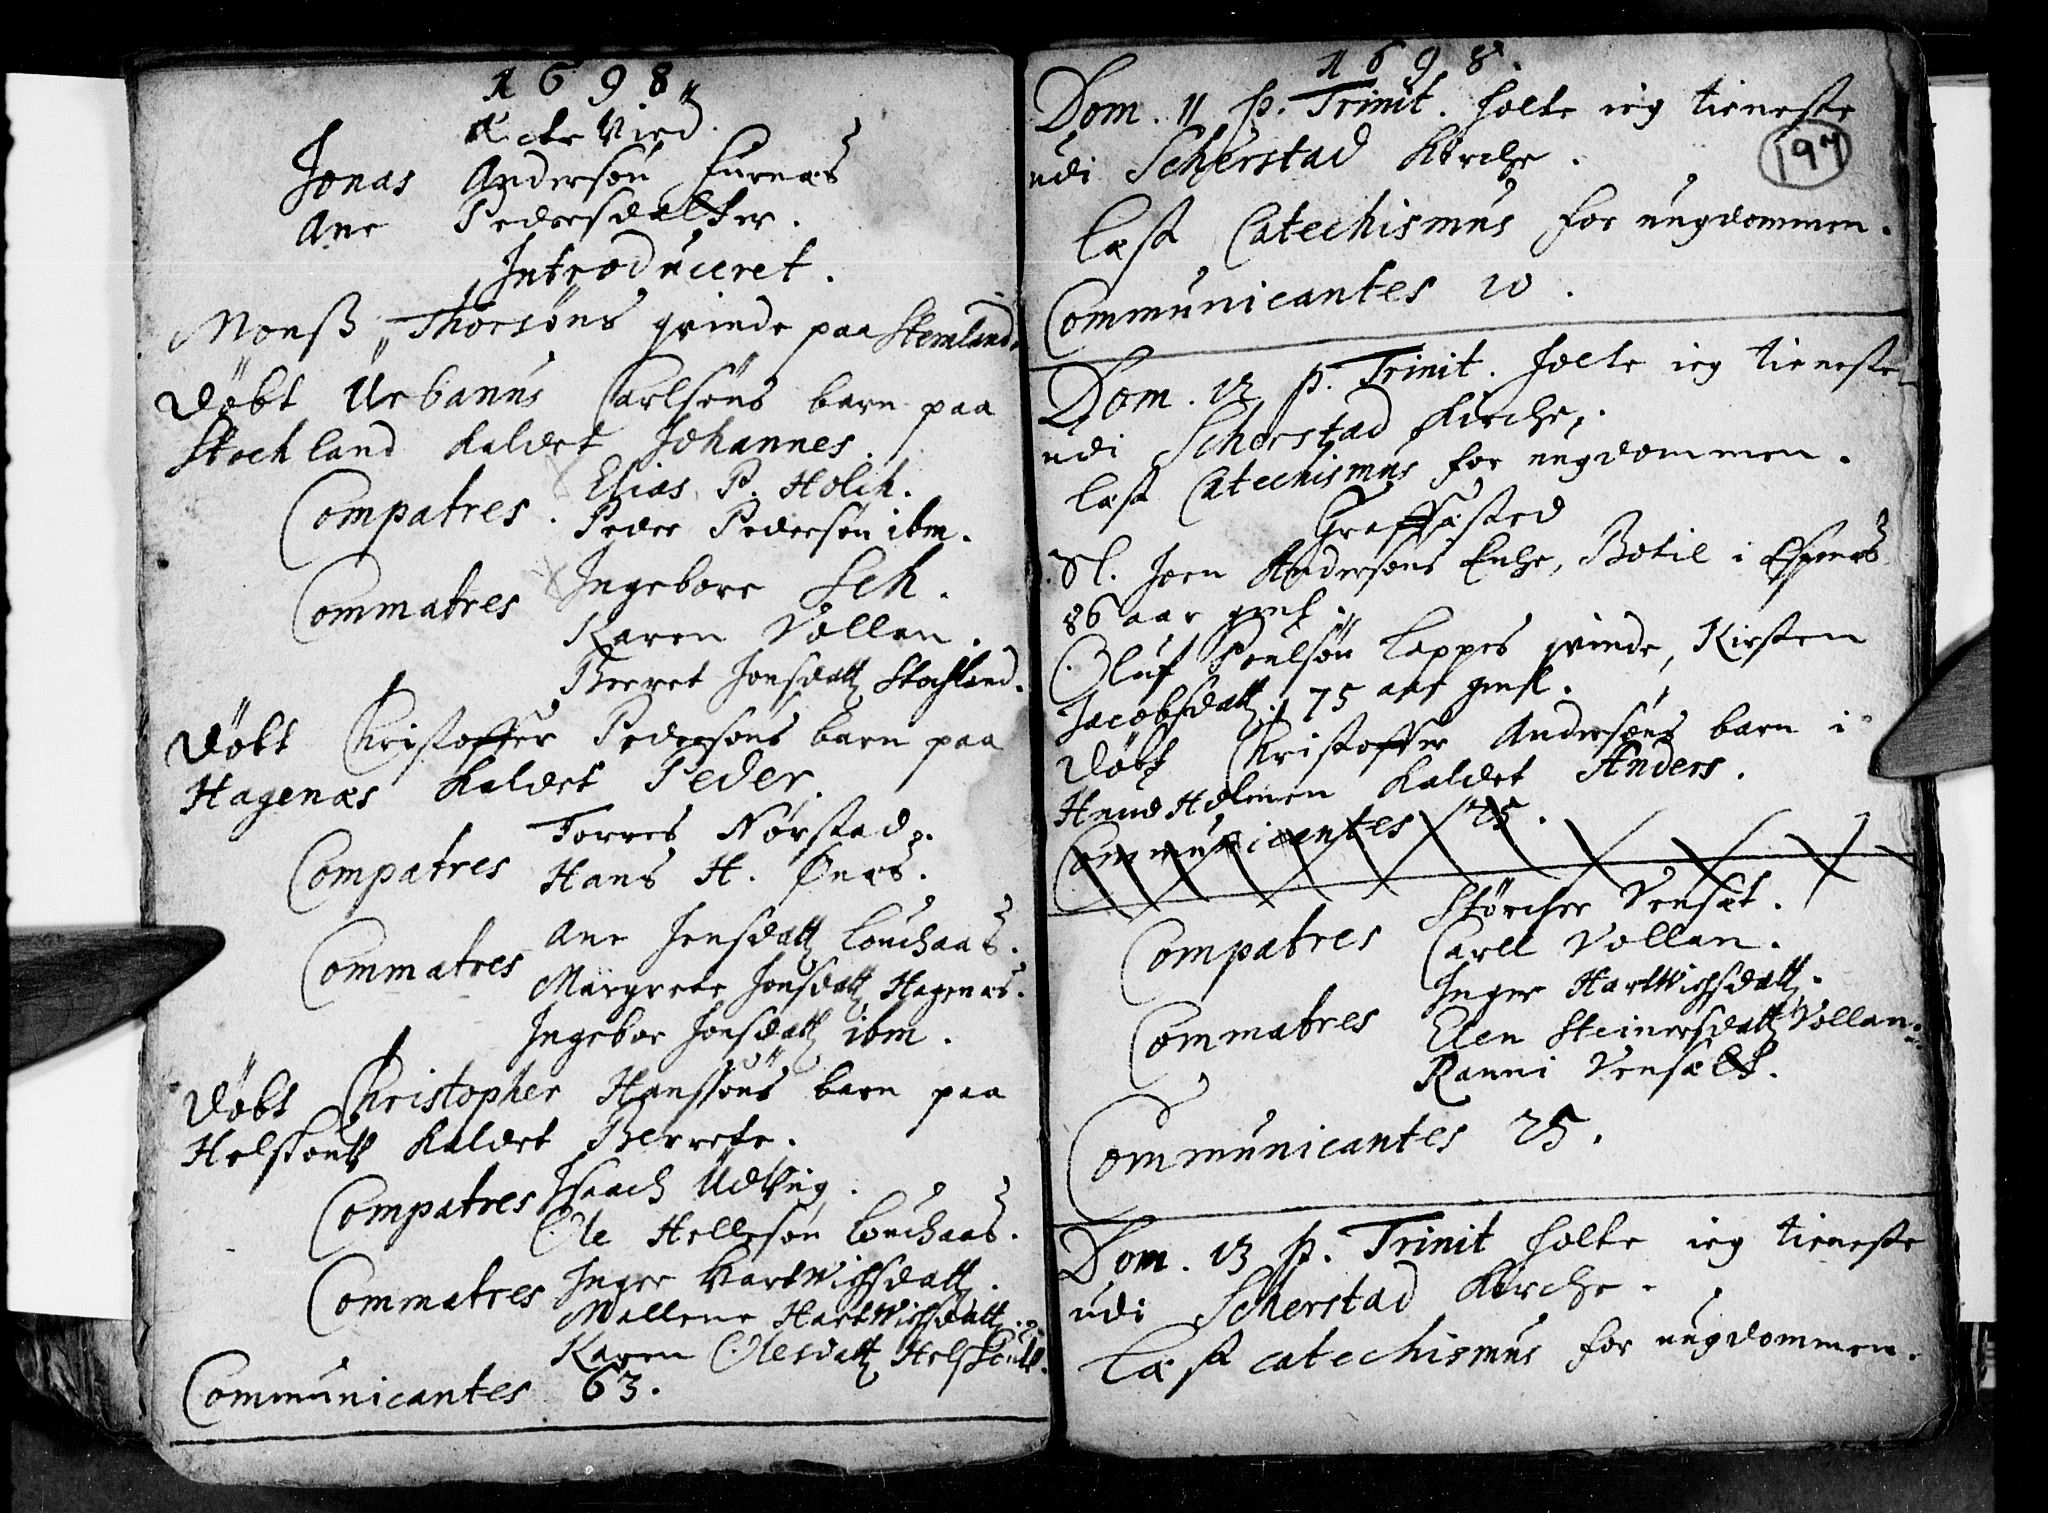 1698
Ecte Vied.
Jonas Andersøn Furnæs
Ane Pedersdatter.
Introduceret.
Monß Thorsøns qvinde paa Stemland.
Døbt Urbanus Carlsøns barn paa
Stochland kaldet Johannes.
Compatres. Elias P. Holch.
Peder Pedersøn ibm.
Commatres Ingeborr Sch.
Karen Vollan.
Berret Jonsdatt Stochland.
Døbt Christoffer Pedersøns barn paa
Hagenæs kaldet Peder.
Compatres Torres Nørstad.
Hans H. Ønæs.
Commatres Ane Jensdatt Louchaas.
Margrete Jonsdatt Hagenæs.
Ingebor Jonsdatt ibm.
Døbt Christopher Hanssøns barn paa
Helskoutt kaldet Berrete.
Compatres Isaach Udvig.
Ole Hellesøn Louchaas.
Commatres Inger Hartwichsdatt.
Mallene Hartwichsdatt.
Karen Olesdatt Helskoutt.
Communicantes 63.
1698.
197
Dom. 11 p. Trinit. holte ieg tieneste
udi Scherstad Kirche.
læst Catechismus for ungdommen.
Communicantes 10.
Dom. 12 p. Trinit. holte ieg tieneste
udi Scherstad Kirche.
læst Catechismus for ungdommen.
Graffæsted
Sl. Joen Andersøns Enche, Botil i Espenæs
86 aar gml.
Oluf Poulsøn Lappes qvinde, Kirsten
Jacobsdatt. 75 aar gml.
Døbt Christoffer Andersøns barn i
Hund Holmen kaldet Anders.
Communicantes 25.
Compatres Størcher Vensæt.
Carll Vollan.
Inger Hartwichsdatt.
Commatres Elen Steinersdatt Vollan.
Ranni Vensælt.
Communicantes 25.
Dom. 13 p. Trinit holte ieg tieneste
udi Scherstad Kirche.
læst catechismus for ungdommen.